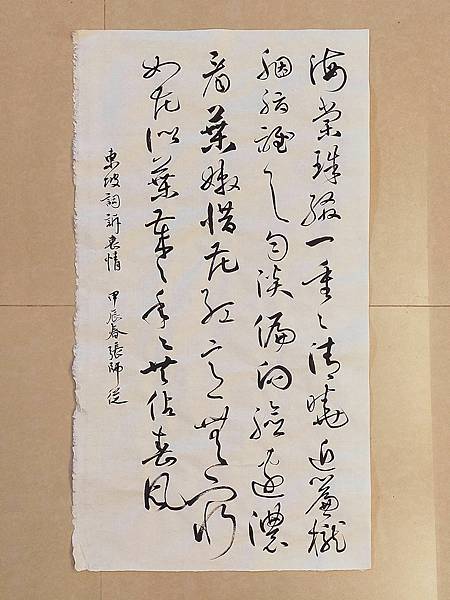 海棠珠綴一重〻清曉近簾櫳
胭脂誰与勻淡偏向臉邊濃
看葉嫩惜花紅意無窮
如花似葉歲〻年〻共佔春風
東坡詞訴衷情 甲辰春張師從